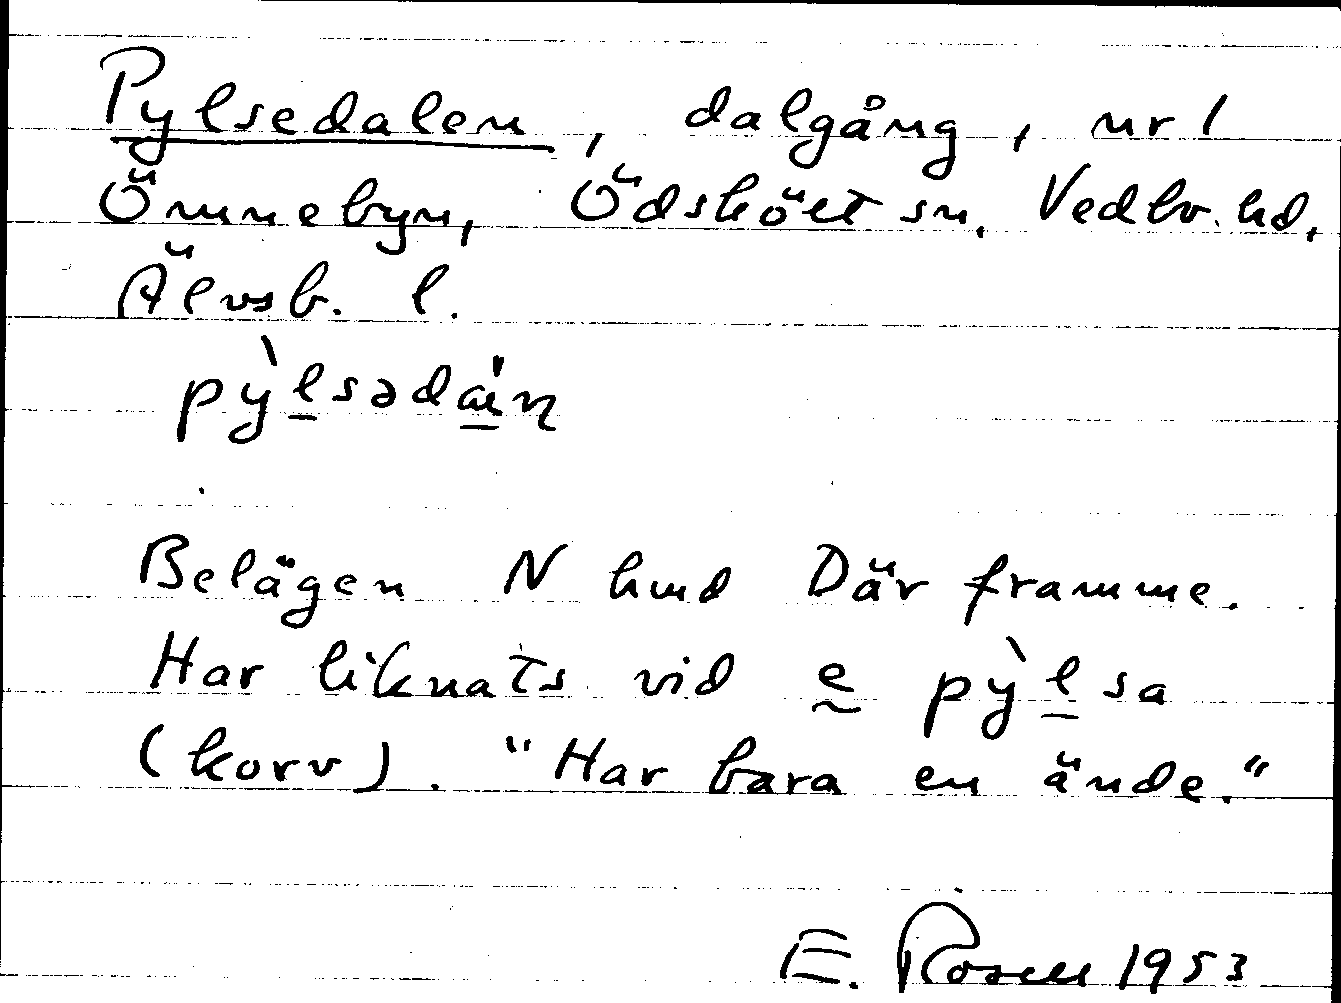 Pylsedalen, dalgång, nr 1
Önnebyn, Ödskölt sn, Vedbo hd,
Älvsb. l.
pỳlsəda
Belägen N hmd Där framme.
Har liknats vid e pỳlsa
(korv). "Har bara en ände."
E. Rosell 1953